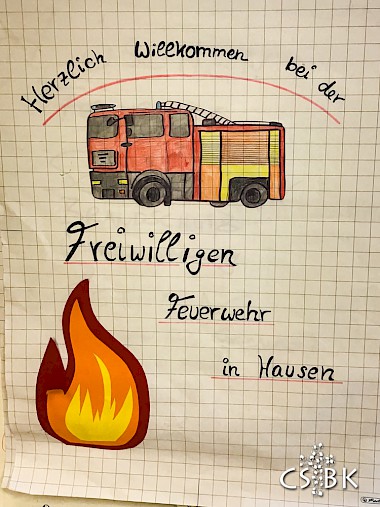 Herzlich Willkommen bei der
Freiwilligen
Feuerwehr
in Hausen
CSBK